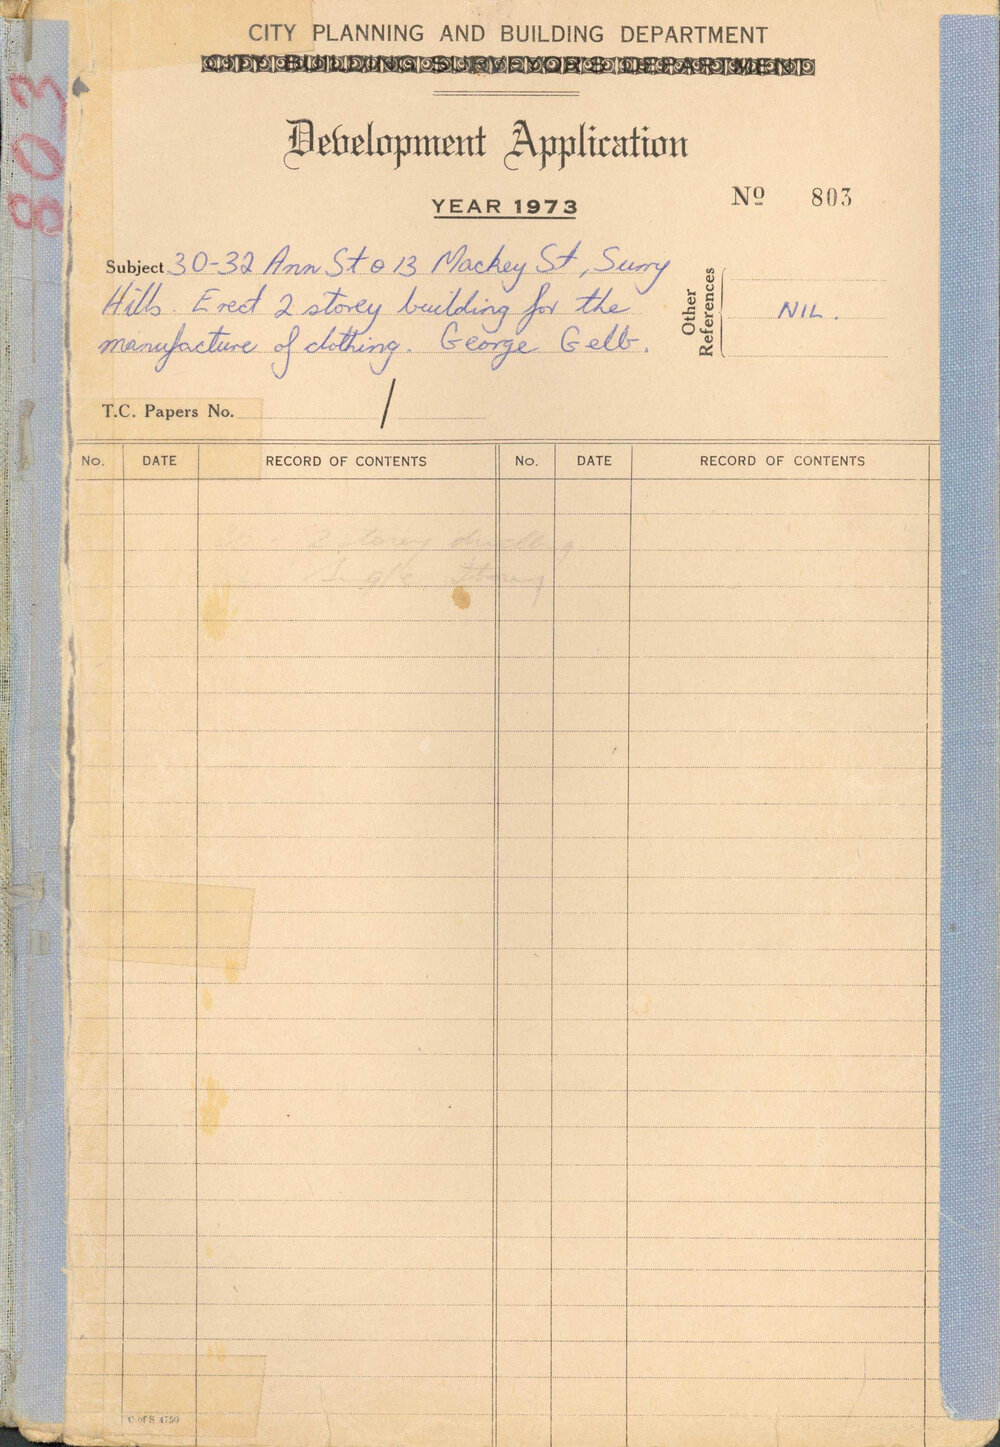 CITY PLANNING AND BUILDING DEPARTMENT
CITY BUILDING SURVEYOR'S DEPARTMENT
Development Application
YEAR 1973
Nº 803
803
Subject 30-32 Ann St & 13 Mackey St, Surry
Hills. Erect 2 storey building for the
manufacture of clothing. George Gelb.
Other
References
NIL.
T.C. Papers No. /
No. DATE RECORD OF CONTENTS No. DATE RECORD OF CONTENTS
2 storey dwelling
Single Storey
C of S 4750